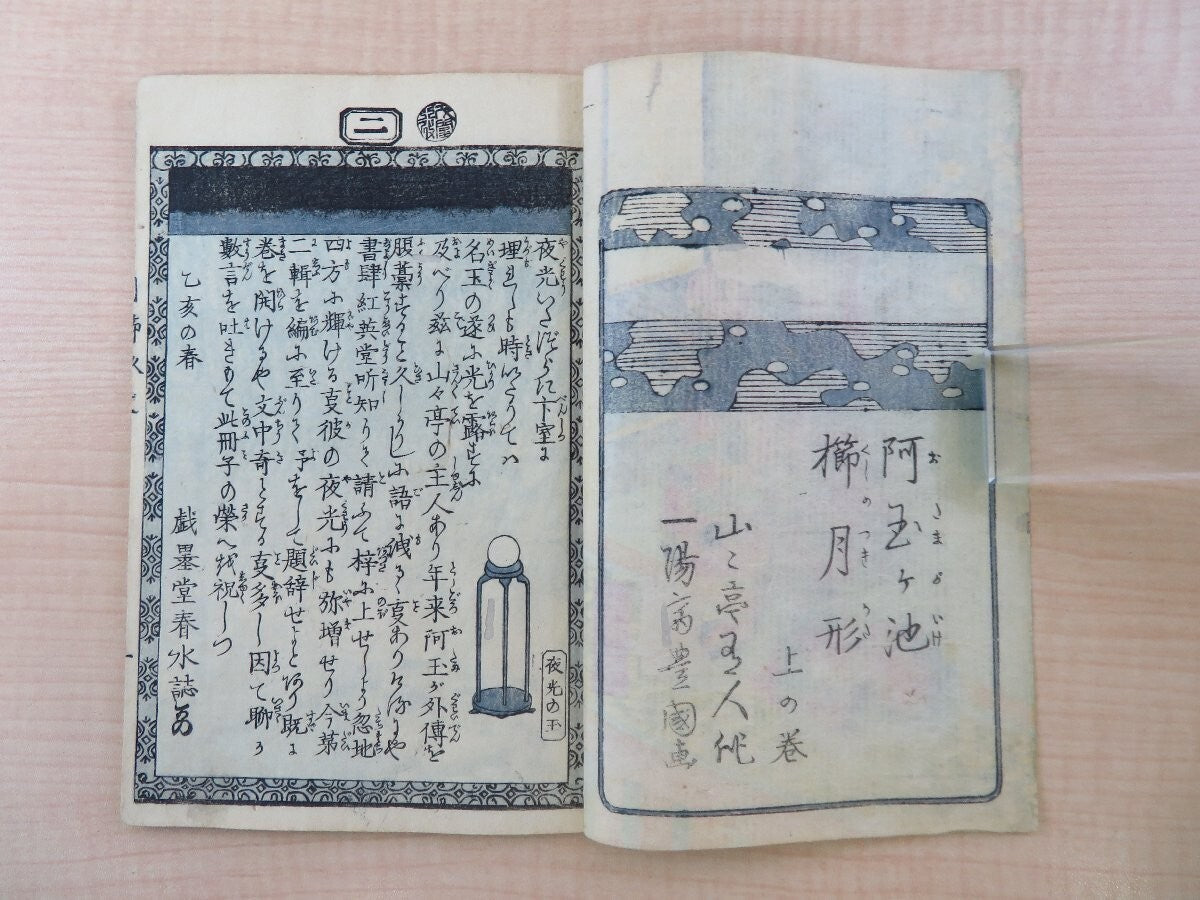 阿玉ヶ池
おたまがいけ
櫛月形
くしのつきがた
上の巻
山々亭有人作
一陽斎豊國画
二
夜光の玉
夜光いたづらに卞室に
埋れしも時いたりてハ
名玉の遂に光を露すに
及べり茲に山々亭の主人あり年来阿玉が外傳を
腹藁すること久しかりしに語に洩るゝ叓ありけるにや
書肆紅英堂听知りて請ふて梓に上せしより忽地
四方に輝ける叓彼の夜光にも弥増せり今第
二輯を編に至りて予をして題辞せよとあり既に
巻を開けるや文中奇とする叓多し因て聊か
數言を吐きもて此冊子の榮へを祝しつ
乙亥の春
戯墨堂春水誌